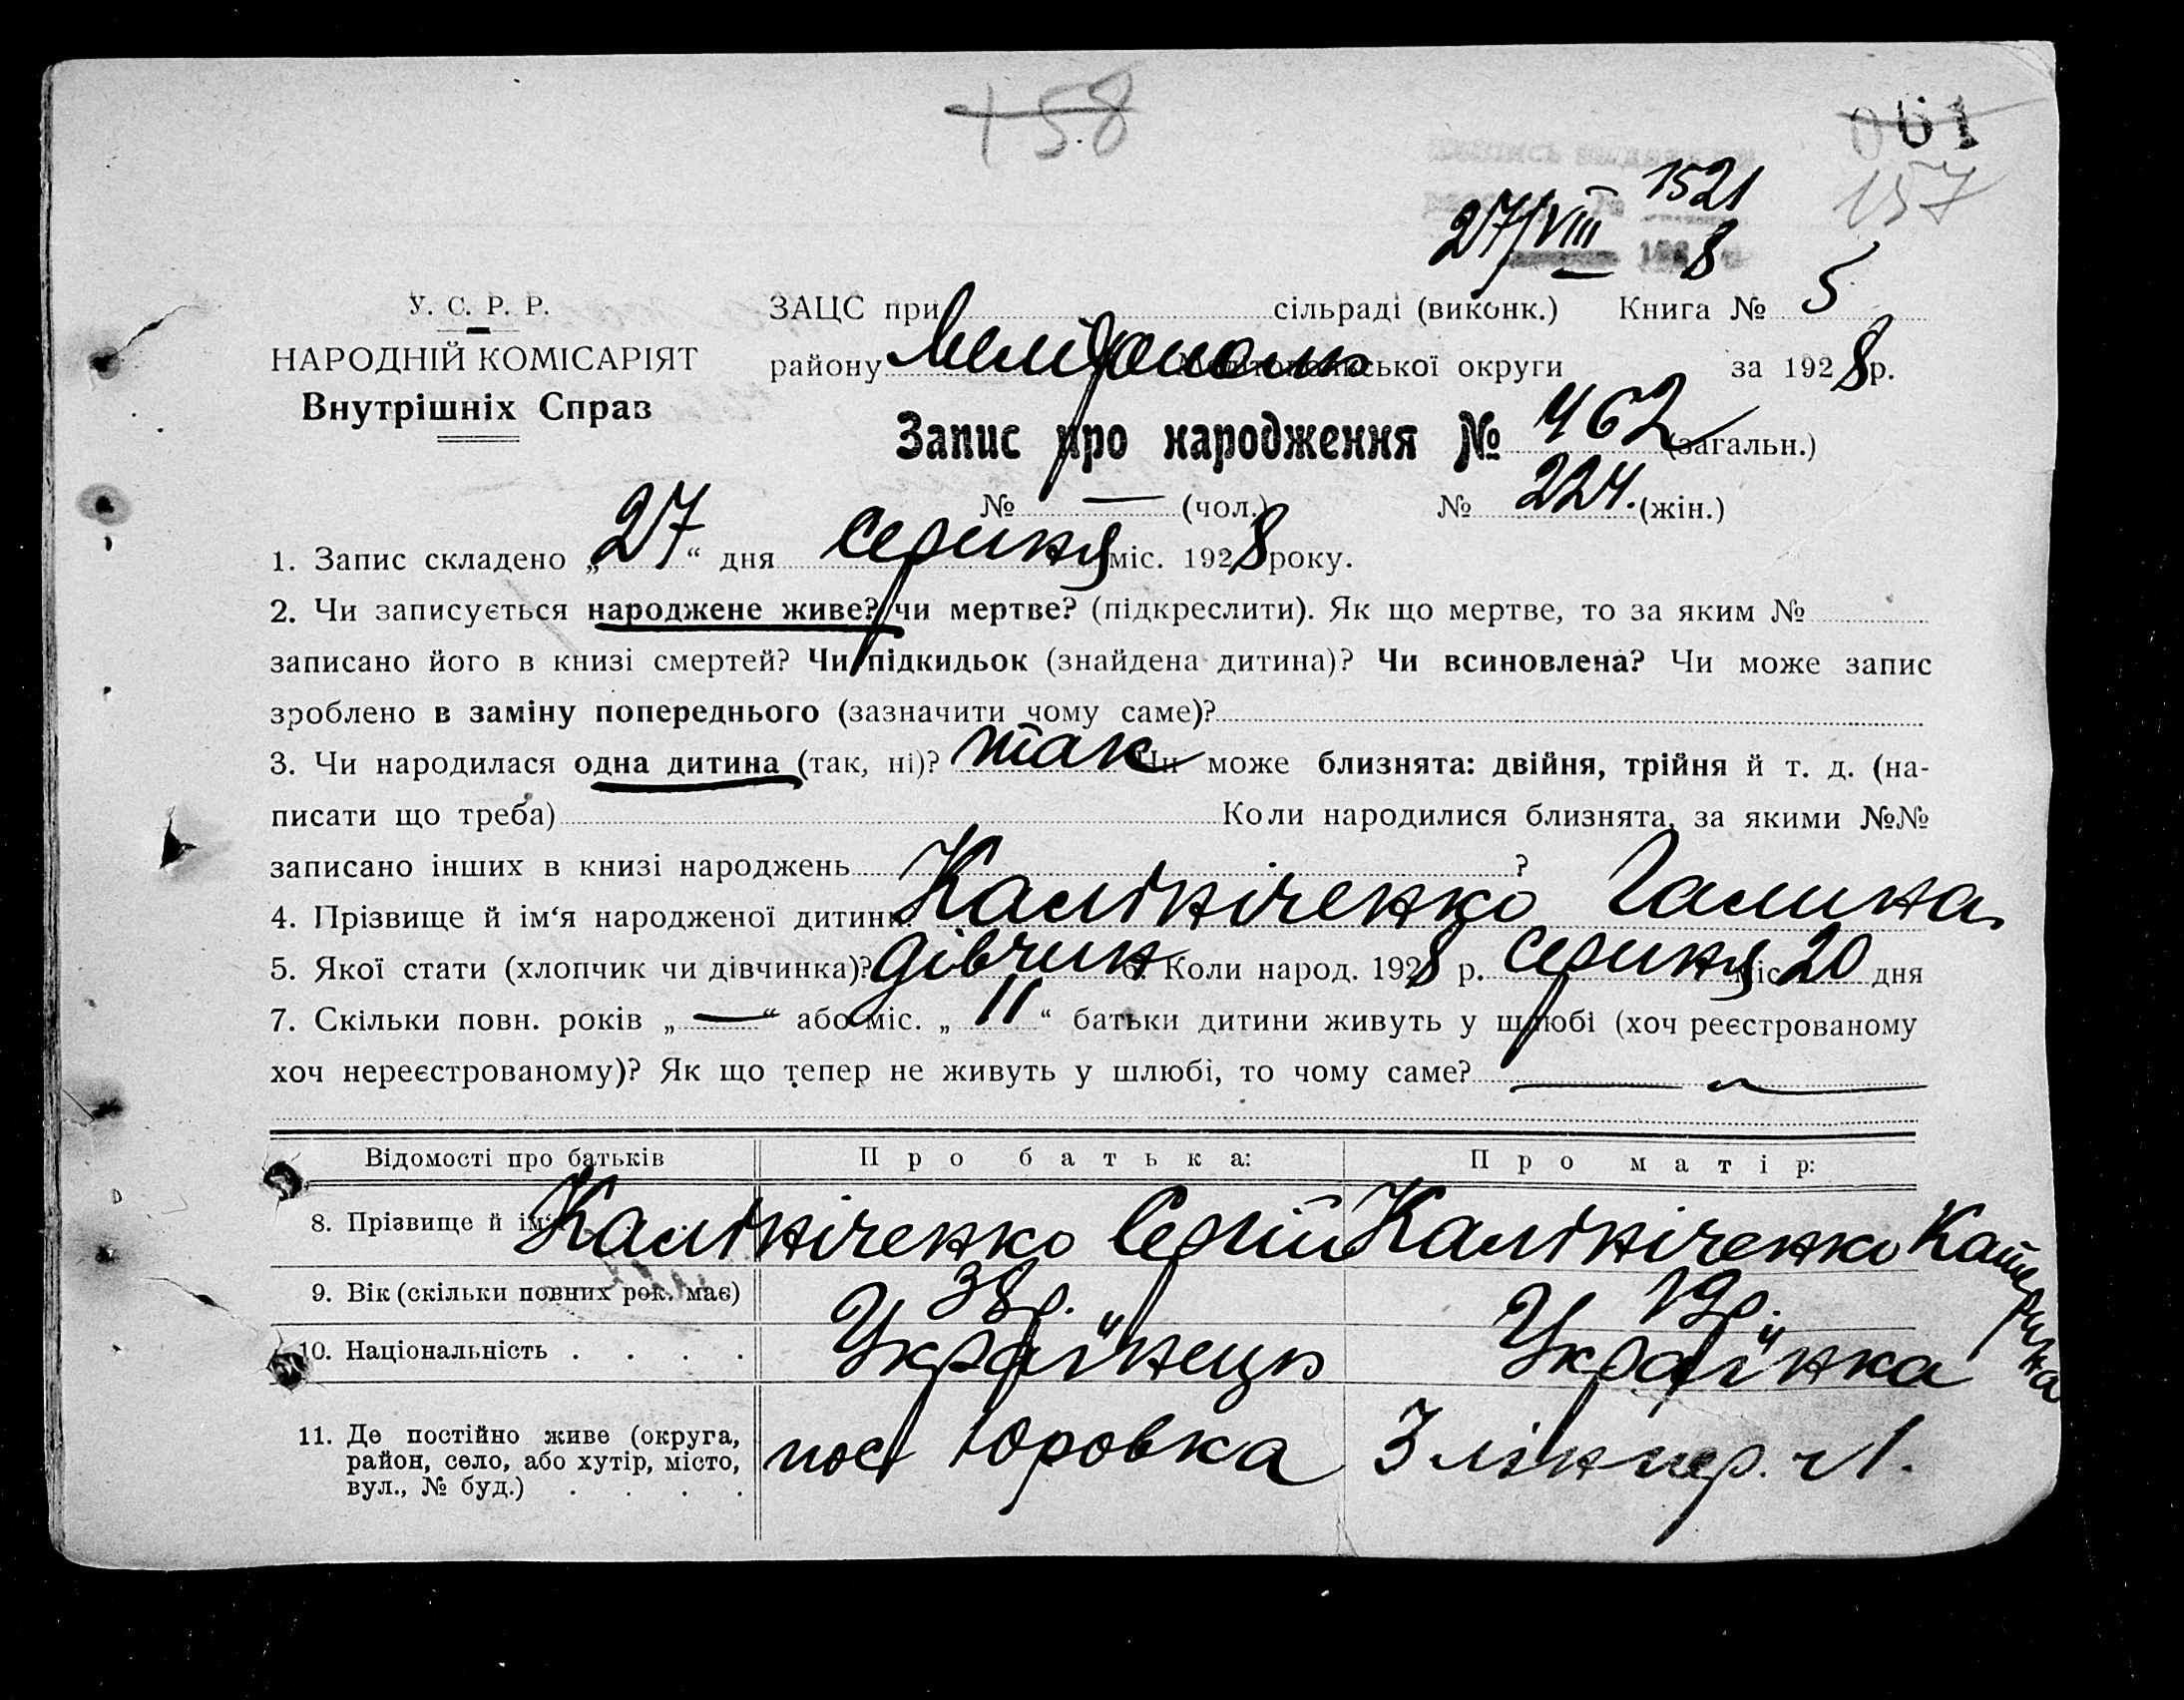 158
061
157
1521
27/VIII 8
У. С. Р. Р.
НАРОДНІЙ КОМІСАРІЯТ
Внутрішніх Справ
ЗАЦС при сільраді (виконк.) Книга № 5
району Мелітополь ської округи за 1928 р.
Запис про народження № 462 (загальн.)
№ — (чол.) № 224. (жін.)
1. Запис складено „27“ дня серпня міс. 1928 року.
2. Чи записується народжене живе? чи мертве? (підкреслити). Як що мертве, то за яким №
записано його в книзі смертей? Чи підкидьок (знайдена дитина)? Чи всиновлена? Чи може запис
зроблено в заміну попереднього (зазначити чому саме)?
3. Чи народилася одна дитина (так, ні)? так Чи може близнята: двійня, трійня й т. д. (на-
писати що треба) Коли народилися близнята, за якими №№
записано інших в книзі народжень ?
4. Прізвище й ім‘я народженої дитини: Калініченко Галина
5. Якої стати (хлопчик чи дівчинка)? дівчин 6. Коли народ. 1928 р. серпня міс 20 дня
7. Скільки повн. років „—“ або міс. „11“ батьки дитини живуть у шлюбі (хоч реєстрованому
хоч нереєстрованому)? Як що тепер не живуть у шлюбі, то чому саме? —
Відомості про батьків Про батька: Про матір:
8. Прізвище й ім‘я Калініченко Сергій Калініченко Катерина
9. Вік (скільки повних рок. має) 38 р. 19 р.
10. Національність . . . . Українець Українка
11. Де постійно живе (округа,
район, село, або хутір, місто,
вул., № буд.) . . . .
пос Юровка 3 лінія